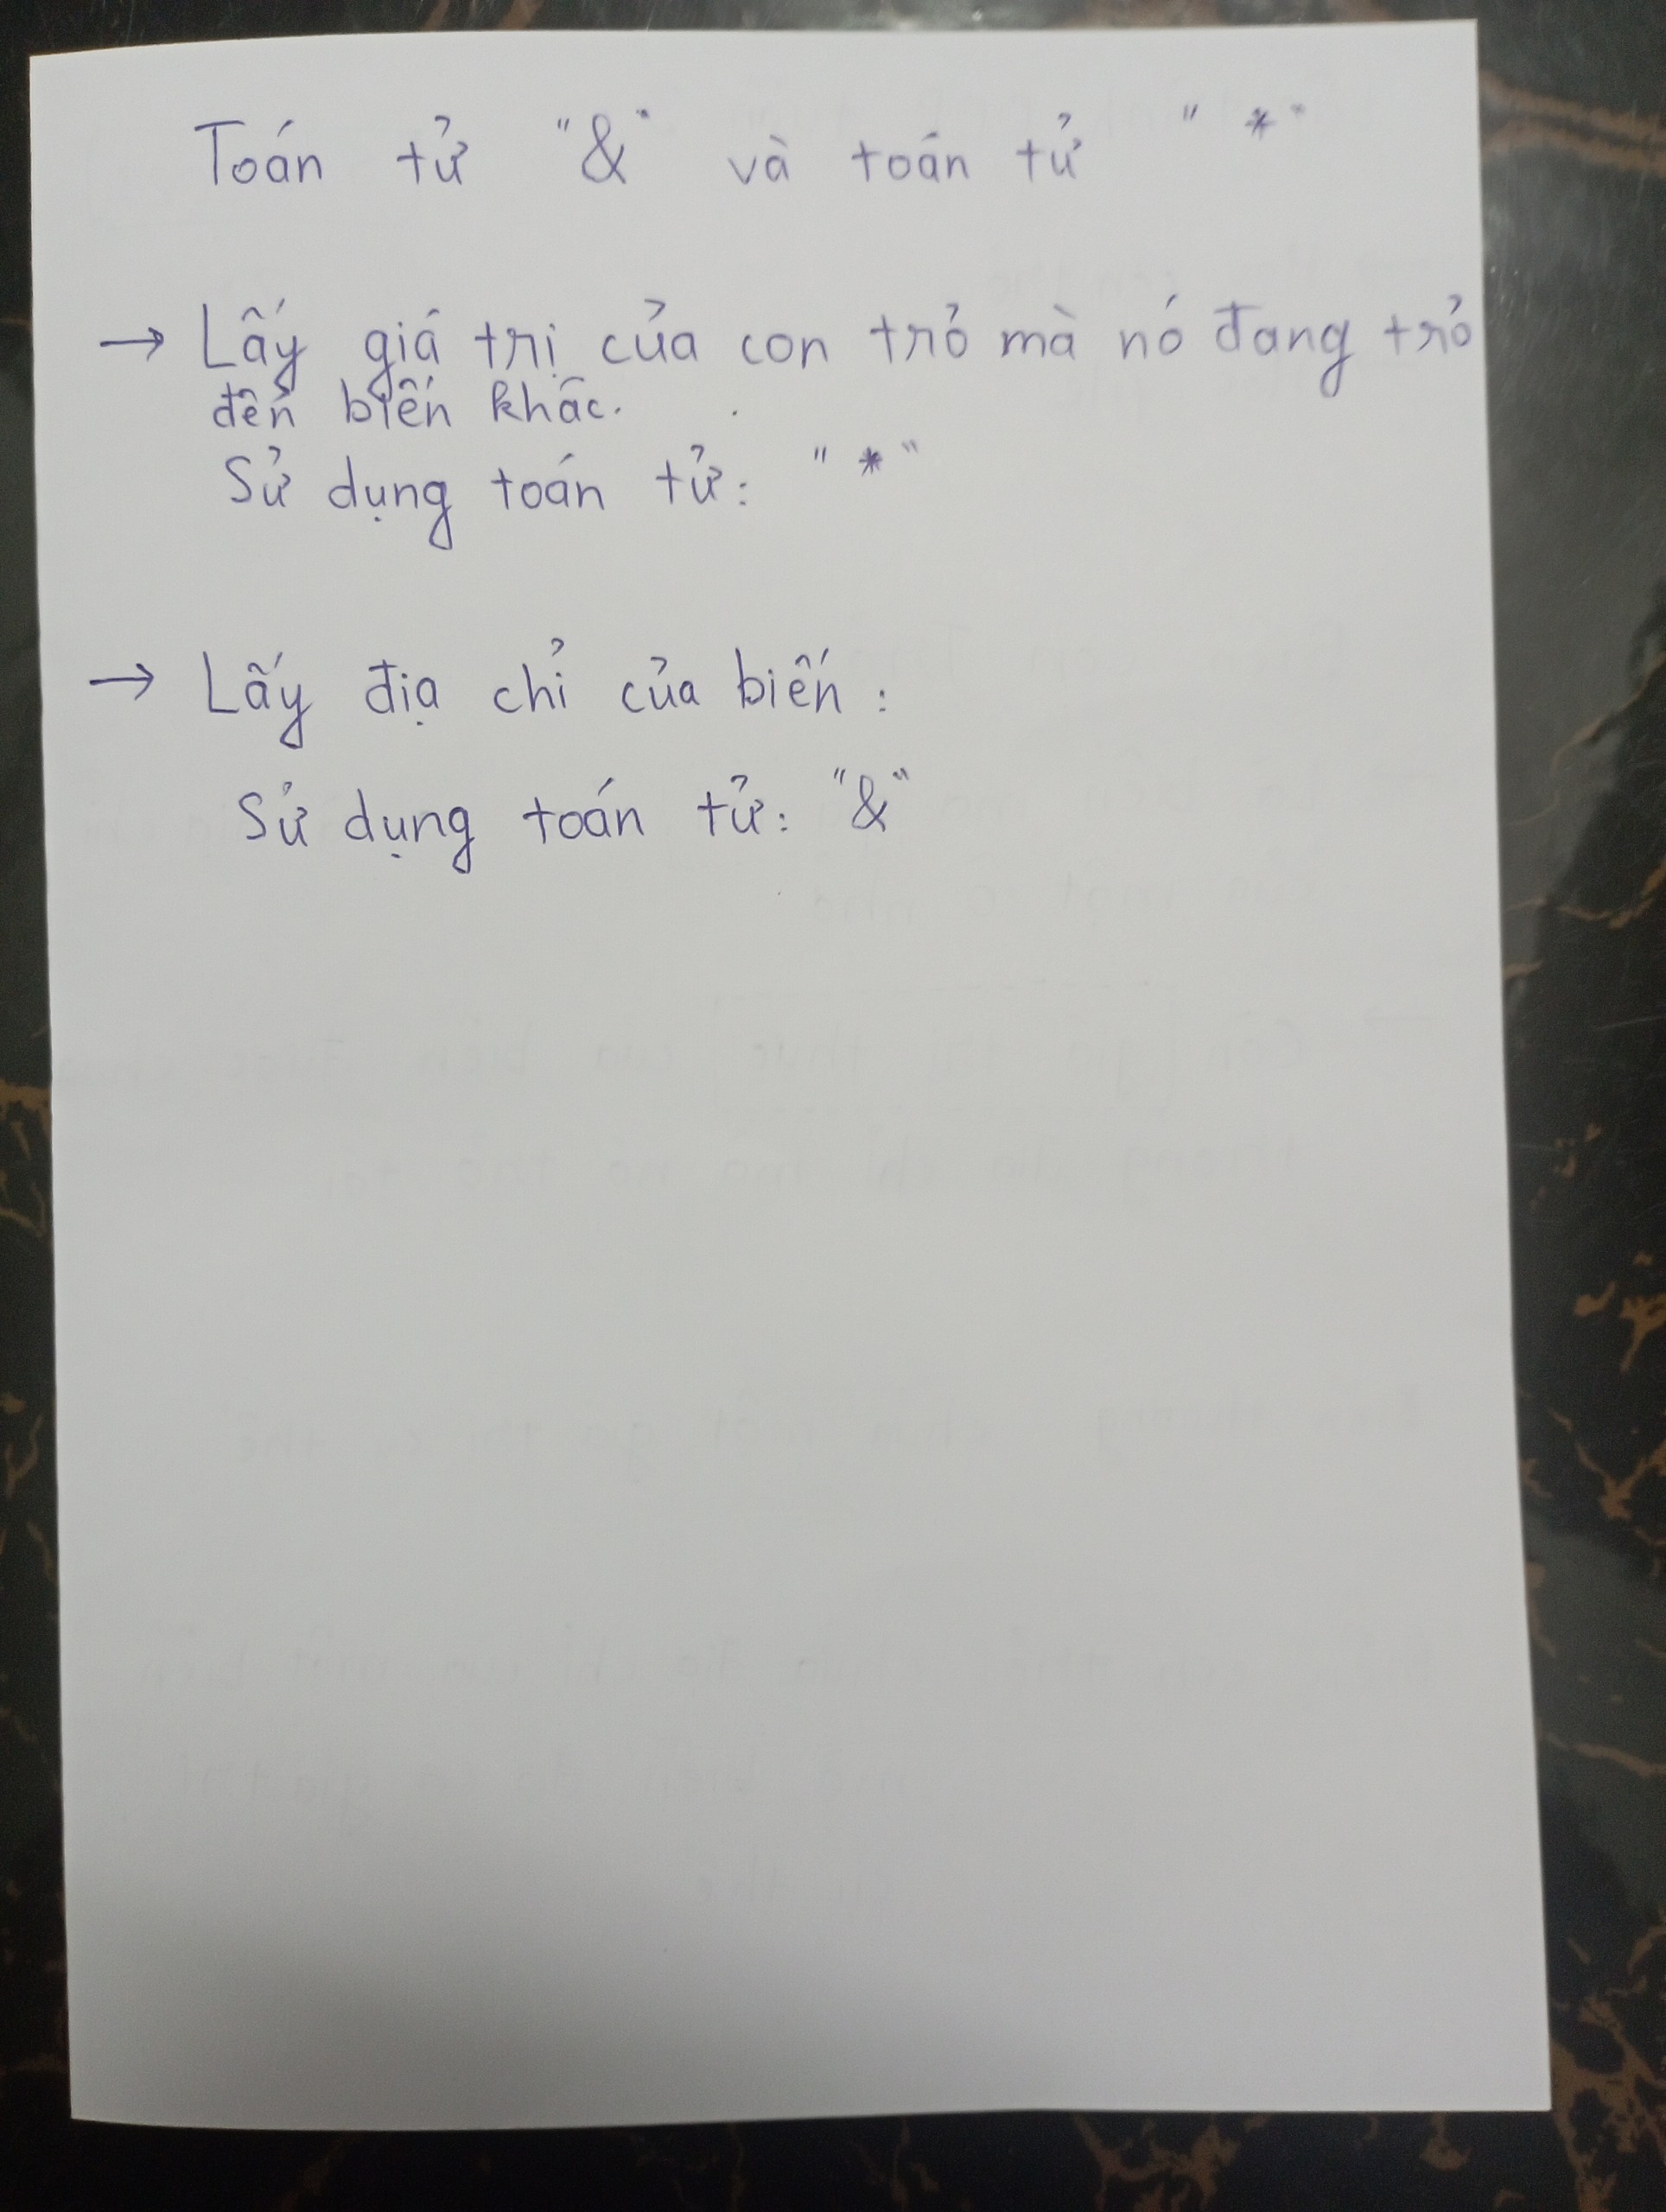 Toán tử "&" và toán tử "*"
→ Lấy giá trị của con trỏ mà nó đang trỏ
đến biến khác.
Sử dụng toán tử: "*"
→ Lấy địa chỉ của biến:
Sử dụng toán tử: "&"